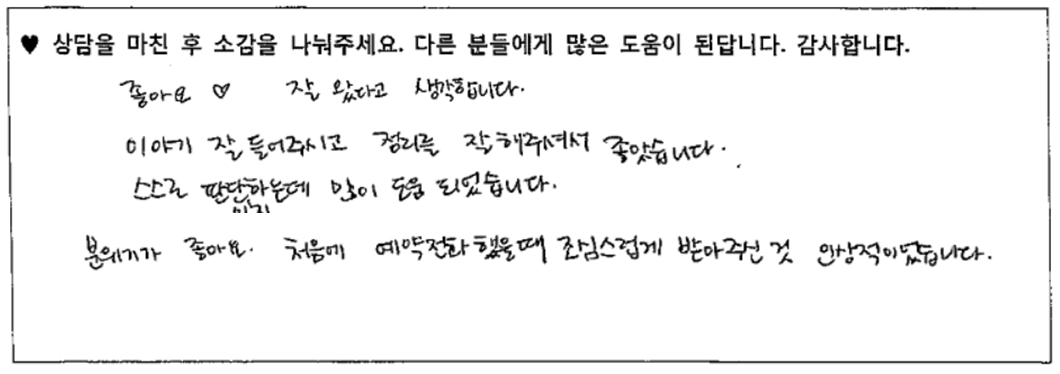 ♥ 상담을 마친 후 소감을 나눠주세요. 다른 분들에게 많은 도움이 된답니다. 감사합니다.
좋아요 ♡ 잘 왔다고 생각합니다.
이야기 잘 들어주시고 정리를 잘 해주셔서 좋았습니다.
스스로 판단하는데 많이 도움 되었습니다.
분위기가 좋아요. 처음에 예약전화 했을때 조심스럽게 받아주신 것 인상적이였습니다.